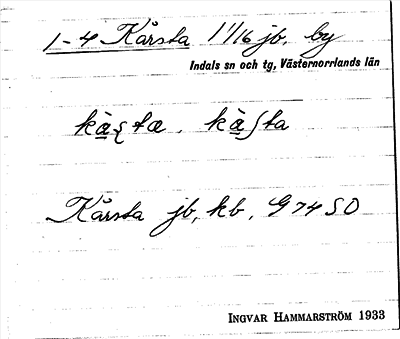 1-4 Kårsta 1 1/16 jb. by
Indals sn och tg, Västernorrlands län
Kårsta jb, kb, G 74 SO
INGVAR HAMMARSTRÖM 1933